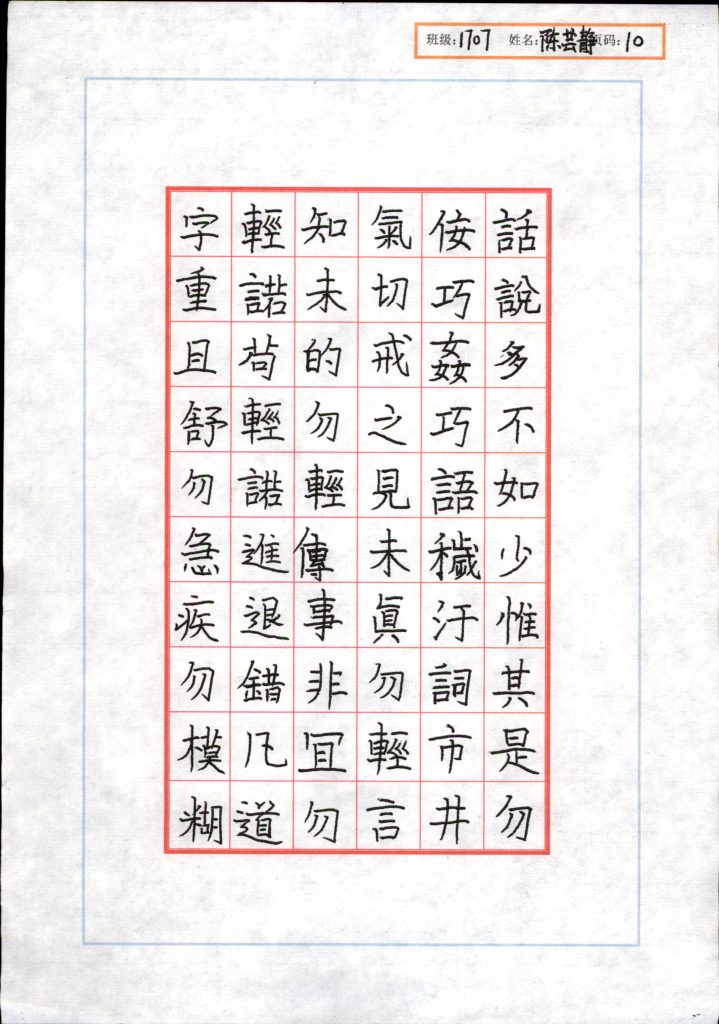 班级:1707 姓名:陈芸静 页码:10
話說多不如少惟其是勿
佞巧姦巧語穢汙詞市井
氣切戒之見未眞勿輕言
知未的勿輕傳事非宜勿
輕諾茍輕諾進退錯凡道
字重且舒勿急疾勿模糊